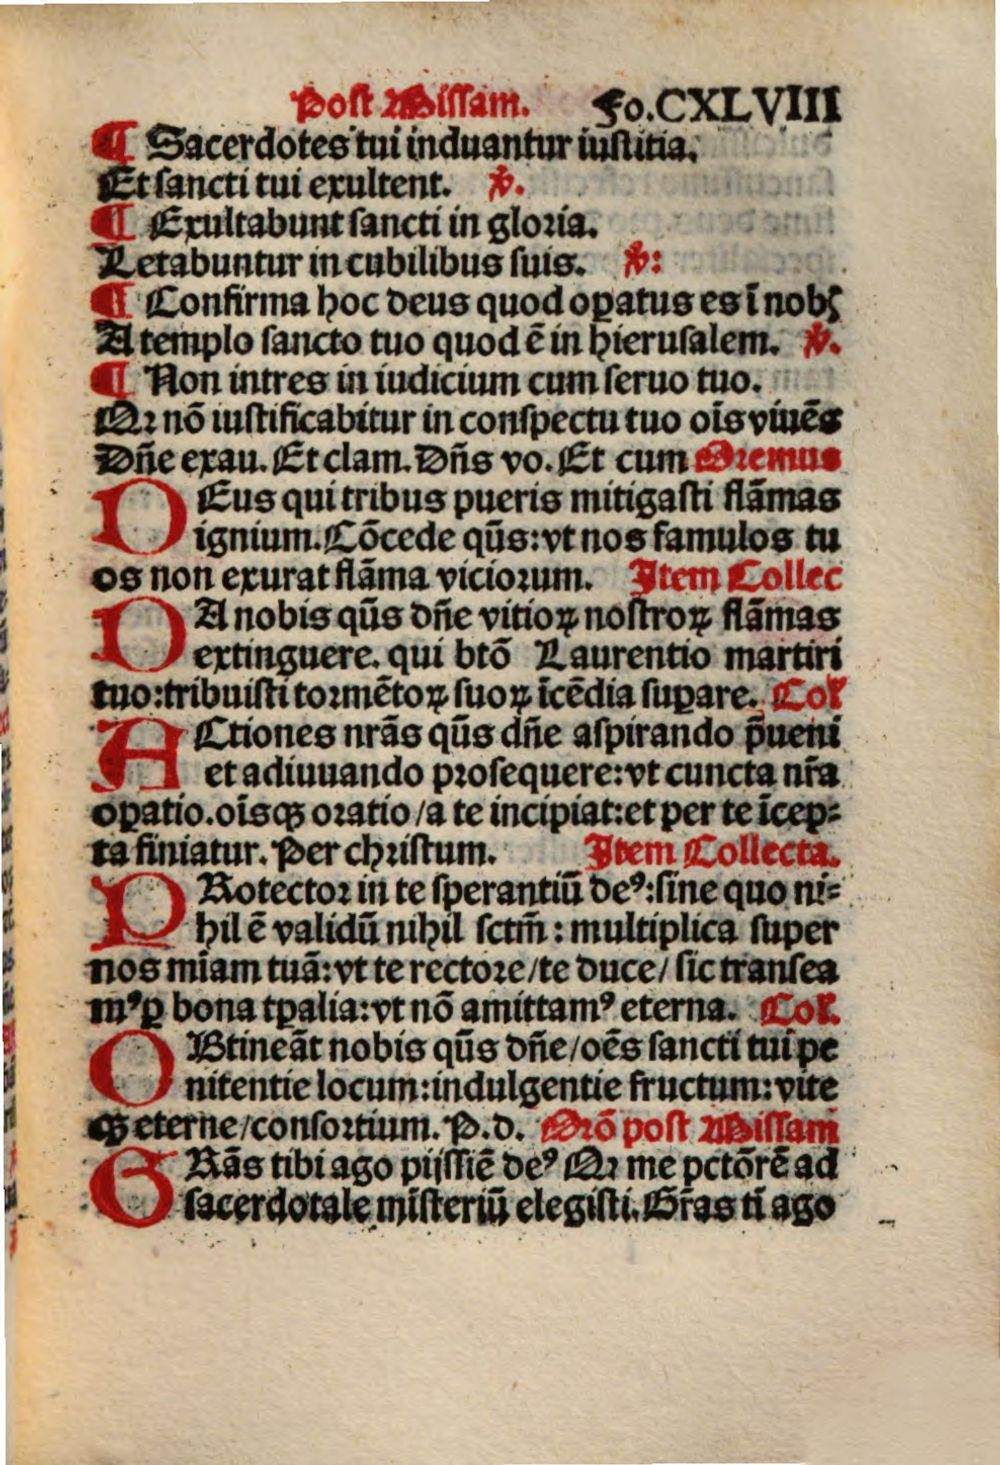 Post Missam. Fo.CXLVIII
¶ Sacerdotes tui induantur iustitia.
Et sancti tui exultent. ℣.
¶ Exultabunt sancti in gloria.
Letabuntur in cubilibus suis. ℣:
¶ Confirma hoc deus quod oꝑatus es ī nobꝭ
A templo sancto tuo quod ē in hierusalem. ℣.
¶ Non intres in iudicium cum seruo tuo.
Qꝛ nō iustificabitur in conspectu tuo oīs viuēs
Dn̄e exau. Et clam. Dn̄s vo. Et cum Oremus
DEus qui tribus pueris mitigasti flāmas
ignium. Cōcede qūs: vt nos famulos tu
os non exurat flāma viciorum. Item Collec
DA nobis qūs dn̄e vitioꝝ nostroꝝ flāmas
extinguere. qui btō Laurentio martiri
tuo: tribuisti tormētoꝝ suoꝝ īcēdia suꝑare. Col̄
ACtiones nrās qūs dn̄e aspirando p̄ueni
et adiuuando prosequere: vt cuncta nr̄a
oꝑatio. oīsqꝫ oratio / a te incipiat: et per te īcep=
ta finiatur. Per christum. Item Collecta.
PRotector in te sperantiū deꝰ: sine quo ni=
hil ē validū nihil sctm̄: multiplica super
nos mīam tuā: vt te rectore / te duce / sic transea
mꝰ ꝑ bona tꝑalia: vt nō amittamꝰ eterna. Col̄.
OBtineāt nobis qūs dn̄e / oēs sancti tui pe
nitentie locum: indulgentie fructum: vite
qꝫ eterne / consortium. P. d. Orō post Missam
GRās tibi ago pijssiē deꝰ Qꝛ me pctōrē ad
sacerdotale mīsteriū elegisti. Gr̄as ti ago